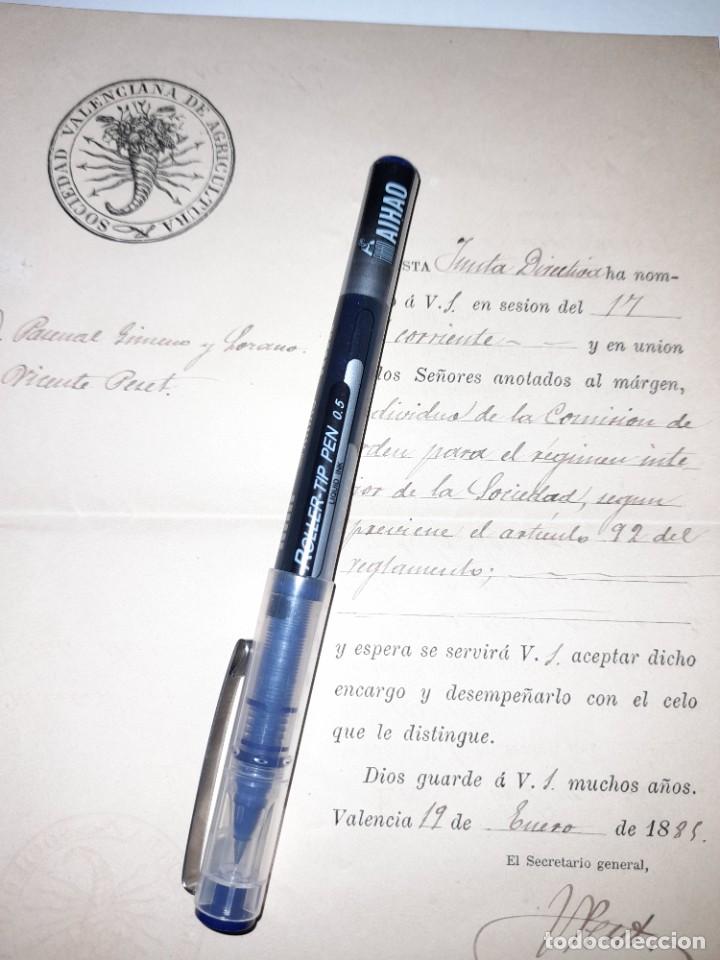 SOCIEDAD VALENCIANA DE AGRICULTURA
D. Pascual Gimeno y Lozano.
Vicente Peset.
AIHAO
ROLLER-TIP PEN 0.5
LIQUID INK
STA Junta Directiva ha nom-
o á V.S. en sesion del 17
corriente y en union
los Señores anotados al márgen,
dividuo de la Comision de
rden para el régimen inte
ior de la Sociedad, segun
previene el artículo 92 del
reglamento;
y espera se servirá V.S. aceptar dicho
encargo y desempeñarlo con el celo
que le distingue.
Dios guarde á V.S. muchos años.
Valencia 19 de Enero de 1885.
El Secretario general,
todocoleccion